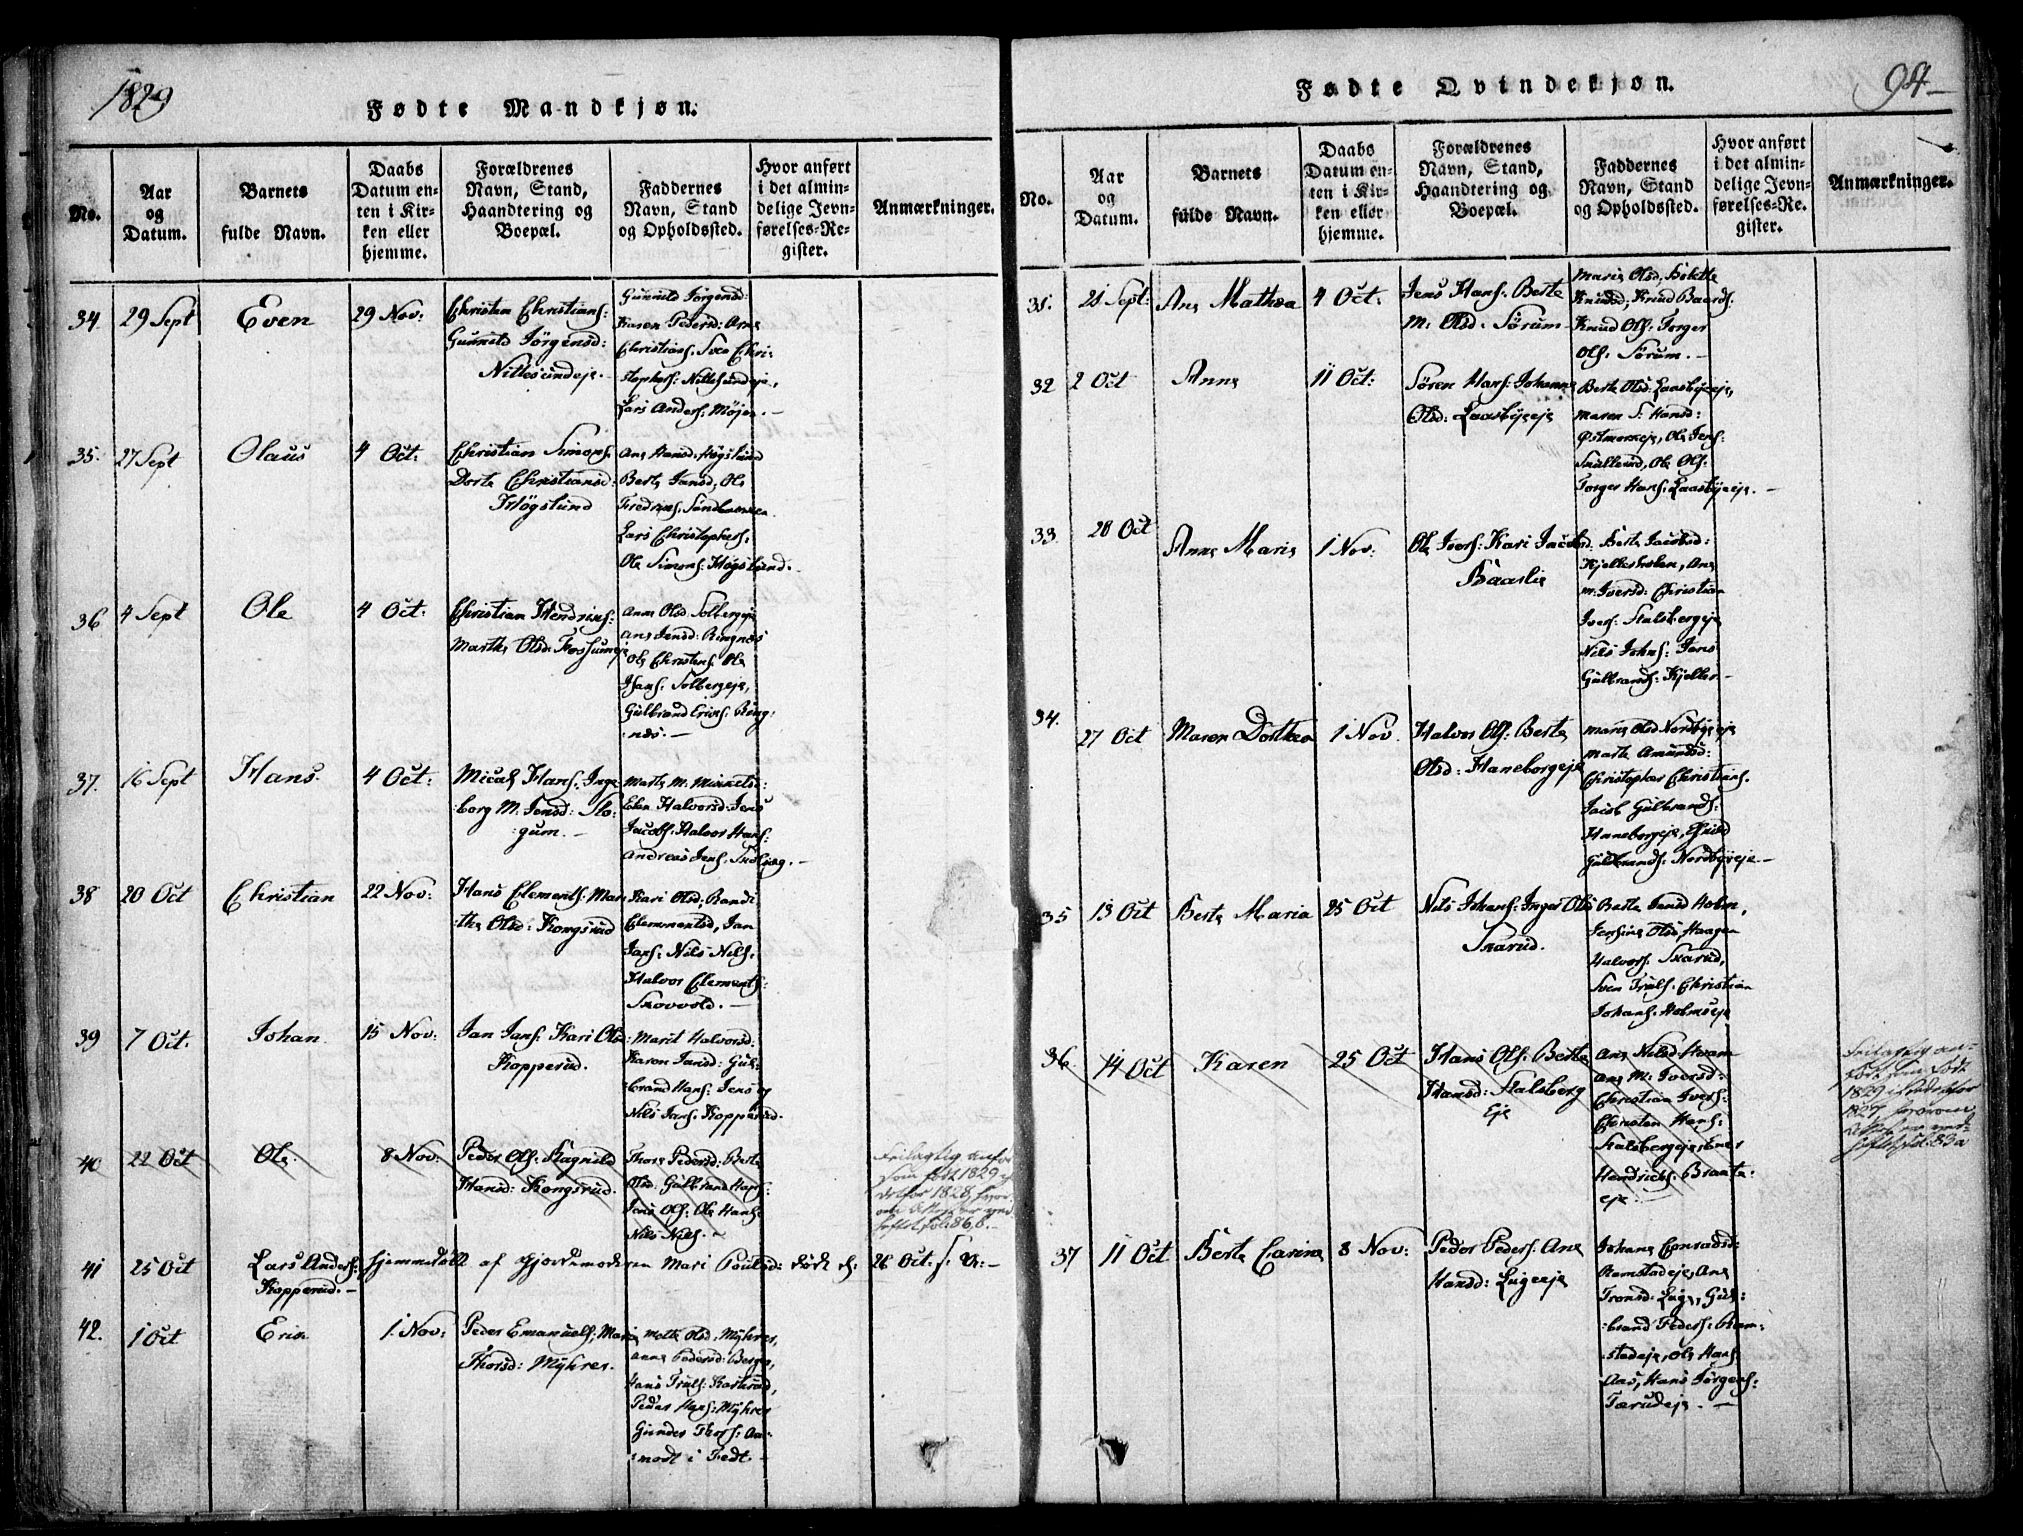 1829
Fødte Mandkjøn.
No.
Aar og Datum.
Barnets fulde Navn.
Daabs Datum enten i Kirken eller hjemme.
Forældrenes Navn, Stand, Haandtering og Boepæl.
Faddernes Navn, Stand og Opholdssted.
Hvor anført i det almindelige Jevnførelses-Register.
Anmærkninger.
34. 29 Sept Even 29 Nov:
Christen Christians:
Gunnild Jörgensd:
Nittesündeje.
Gunnild Jörgensd:
Karen Pedersd: Arne
Christians: Sven Chri-
stophers: Nittesündeje,
Lars Anders: Møjer.
35. 27 Sept Olaus 4 Oct:
Christian Simons:
Dorte Christiansd:
Högslund
Ane Hansd: Högslund
Berte Jansd, Ole
Fredrichs:
Lars Christophers:
Ole Simons: Högslund.
36 4 Sept Ole 4 Oct:
Christian Hendrichs:
Marthe Olsd: Fossumeje
Anne Olsd Solbergeje
Ane Jensd: Ringnæs
Ole Christens: Ole
Hans: Solbergeje,
Gulbrand Erichs: Ring-
næs.
37. 16 Sept Hans 4 Oct:
Micael Hans: Inge
borg M. Jensd: Slo-
gum.
Marte M.
Eden Halvorsd: Jens
Jacobs: Halvor Hans:
Andreas Jens:
38 20 Oct Christian 22 Nov:
Hans Clements: Mar
the Olsd: Kongsrüd
Kari Olsd, Randi
Clementsd, Jan
Jans: Nils Nils:
Halvor Clements:
Skovvold.
39 7 Oct. Johan 15 Nov:
Jan Jans: Kari Olsd:
Kopperüd.
Marit Halvorsd:
Karen Jansd: Gul-
brand Hans: Jens og
Nils Jans: Kopperüd.
40 22 Oct Ole 8 Nov:
Peder Ols: Ragnild
Hansd: Kongsrüd.
Thore Pedersd: Berte
Olsd, Gulbrand Hans:
Jens Ols: Ole Hans:
Nils Nils:
Feilagtig anfør
som født 1829
1828
41 25 Oct Lars Anders: hjemmedøbt af Gjordemoderen Mari Poulsd: døde d: 26 Oct: s: A:
Kopperud.
42. 1 Oct Erik 1. Nov:
Peder Emanuels: Mari
Thorsd: Myhrer.
Mette Olsd: Myhrer,
Anne Pedersd: Berger,
Hans Truls: Karterud,
Peder Hans: Myhrer
Gunder Thors: Aa-
modt i Fedt
Fødte Qvindekjøn.
94
No.
Aar og Datum.
Barnets fulde Navn.
Daabs Datum enten i Kirken eller hjemme.
Forældrenes Navn, Stand, Haandtering og Boepæl.
Faddernes Navn, Stand og Opholdssted.
Hvor anført i det almindelige Jevnførelses-Register.
Anmærkninger.
31. 21 Sept: Ane Mathea 4 Oct:
Jens Hans: Berte
M: Olsd: Sörum
Maria Olsd,
Knudsd: Knud Baards:
Knud Ols: Torger
Ols: Sörum.
32 2 Oct Anne 11 Oct:
Sören Hans: Johanne
Olsd: Laasbyeje
Berte Olsd: Laasbyeje,
Maren S: Hansd:
Østmoreje, Ole Jens:
Snillerud, Ole Ols:
Torger Hans: Laasbyeje.
33 28 Oct Anne Marie 1 Nov:
Ole Ivers: Kari Jacobsd:
Baaslie
Berte Jacobsd:
Kjelleholen, Ane
M: Iversd: Christian
Ivers: Stalsbergeje
Nils Johns: Jens
Gulbrands: Kjeller
34. 27 Oct Maren Dorthea 1 Nov
Halvor Ols: Berte
Olsd: Haneborgeje
Marie Olsd Nordbyeje
Marte Amundsd:
Christopher Christians:
Jacob Gulbrands:
Haneborgeje,
Gulbrands: Nordbyeje
35 13 Oct Berte Maria 25 Oct
Nils Johans: Inger Olsd
Skarüd.
Berte Jensd Holm,
Jensine Olsd, Haagen
Halvors: Skarüd,
Sven Truls. Christian
Johans: Holmseje
36. 14 Oct Karen 25 Oct
Hans Ols: Berte
Hansd: Stalsberg
Eje
Ane Nilsd Hvam
Ane M: Iversd:
Christian Ivers:
Christen Hans:
Stalsbergeje,
Hendrichs: Braate-
eje
Feilagtig an-
ført som født
1829 istedetfor
1827
37 11 Oct Berte Carine 8 Nov:
Peder Peders: Ane
Hansd: Lügeeje
Johane Conradsd:
Ramstadeje, Ane
Tronsd: Lüge, Gul-
brand Peders: Ram-
stadeje, Ole Hans:
Aas, Hans Jörgens:
Tærudeje.